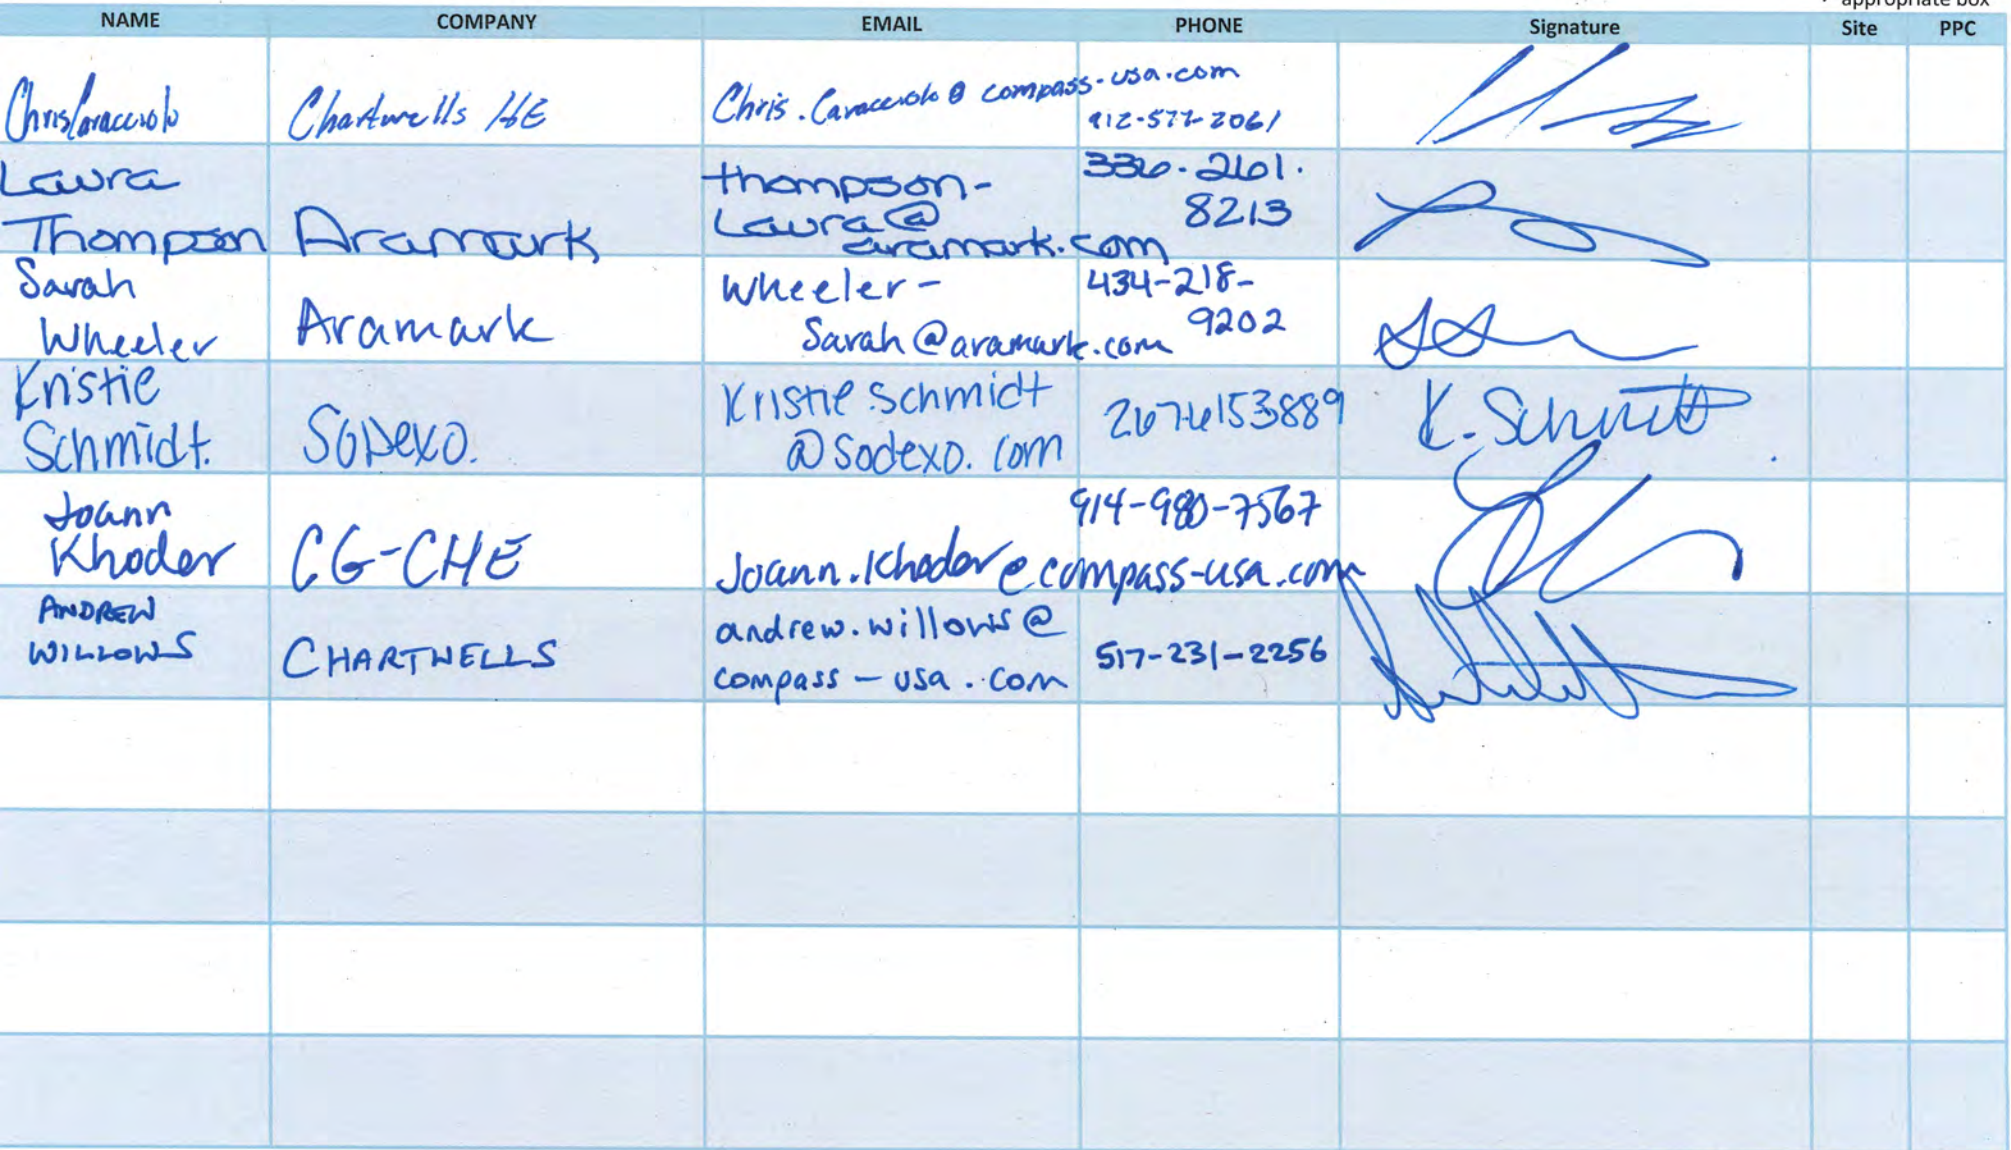 appropriate box
NAME COMPANY EMAIL PHONE Signature Site PPC
Chris Caracciolo Chartwells HE Chris.Caracciolo@compass-usa.com
912-577-2061
Laura
Thompson Aramark thompson-
Laura@
aramark.com 336-261-
8213
Sarah
Wheeler Aramark Wheeler-
Sarah@aramark.com 434-218-
9202
Kristie
Schmidt. Sodexo. Kristie.Schmidt
@Sodexo.com 2676153889 K. Schmidt
Joann
Khoder CG-CHE Joann.Khoder@compass-usa.com 914-980-7567
ANDREW
WILLOWS CHARTWELLS andrew.willows@
compass-usa.com 517-231-2256